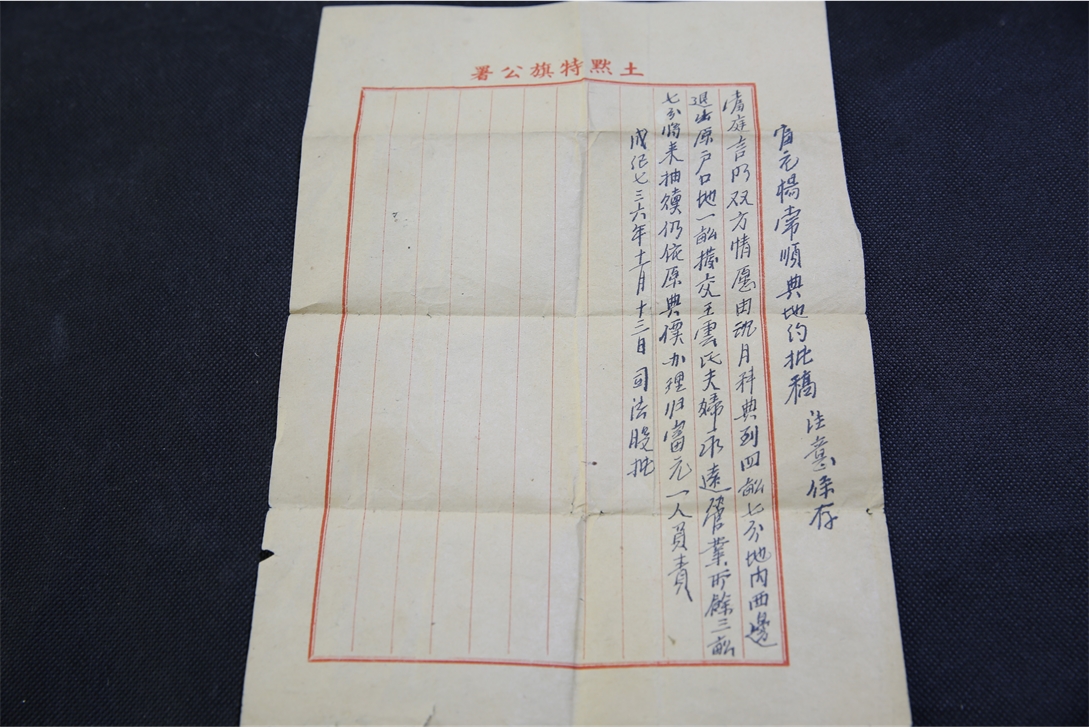 土黙特旗公署
富元楊常順典地約批稿 注意保存
當庭言明双方情愿由珖月科典到四畝七分地内西邊
退出原戶口地一畝撥交王雲氏夫婦永遠營業所餘三畝
七分將来抽贖仍依原典價办理归富元一人員責
成纪七三六年十一月十三日司法股批